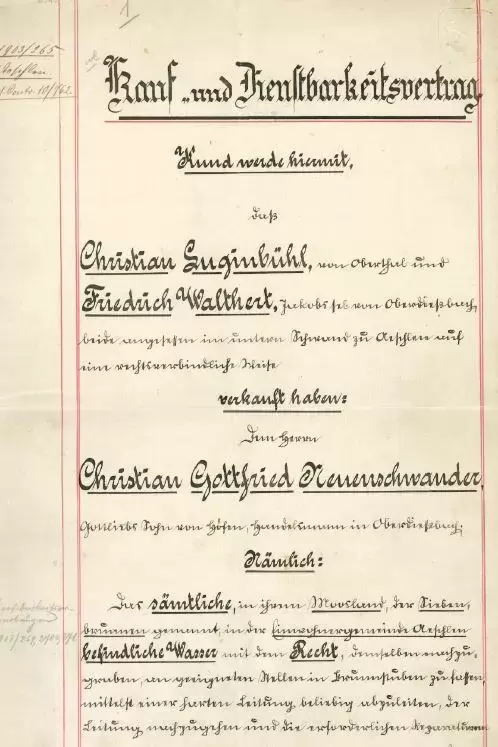 1
1903/265
Aeschlen
Kauf- und Dienstbarkeitsvertrag.
Kund werde hiermit,
daß
Christian Luginbühl, von Oberthal und
Friedrich Walthert, Jakobs sel. von Oberdießbach,
beide angesessen im untern Schwand zu Aeschlen auf
eine rechtsverbindliche Weise
verkauft haben:
Dem Herrn
Christian Gottfried Neuenschwander,
Gottliebs Sohn von Höfen, Handelsmann in Oberdießbach,
Nämlich:
Das sämtliche, in ihrem Moosland, der Sieben-
brunnen genannt, in der Einwohnergemeinde Aeschlen
befindliche Wasser mit dem Recht, demselben nachzu-
graben, an geeigneten Stellen in Brunnstuben zu fassen,
mittelst einer harten Leitung beliebig abzuleiten, der
Leitung nachzugehen und die erforderlichen Reparaturen